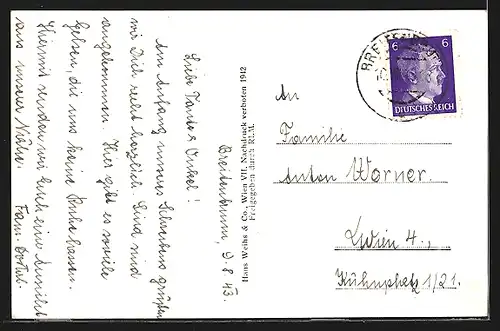 Breitenbrunn, 9.8.43.
Liebe Tante u Onkel!
Am Anfang unseres Schreibens grüßen
wir Dich recht herzlich. Sind
angekommen. Hier gibt es soviele
Gelsen, die uns keine Ruhe lassen.
Hiermit senden wir Euch eine Ansicht
aus unserer Nähe.
Fam.
Hans Weihs & Co. Wien VII, Nachdruck verboten 1942
Freigegeben durch RLM.
BREITENBR
6 6
DEUTSCHES REICH
An
Familie
Anton Worner.
Wien 4.,
Kühnplatz 1/21.